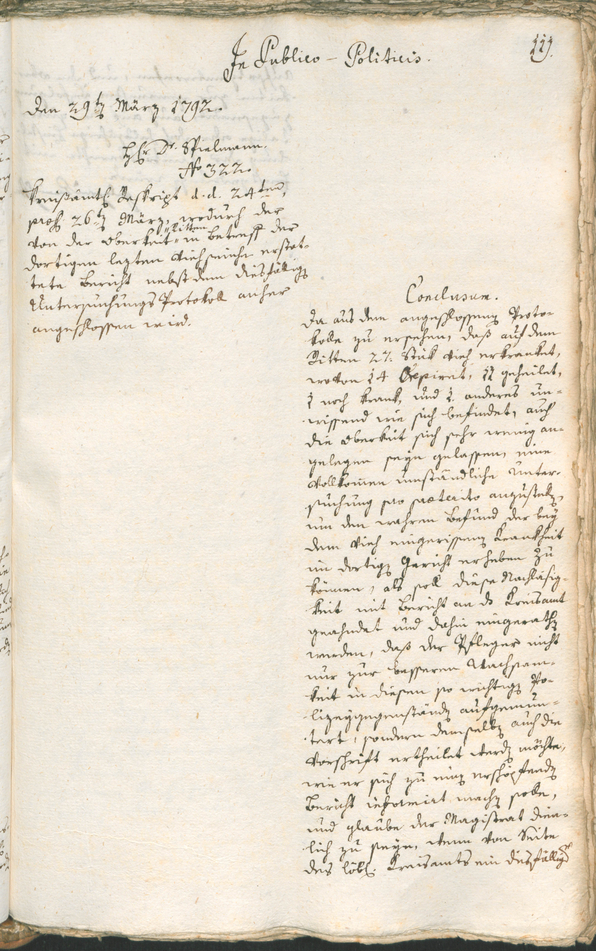 In Publico - Politicis.
119.
Den 29t März 1792.
H. Dr. Spielmann.
No 322.
Kreißämtl. Reskript d. d. 24ten
præs. 26t März, wodurch der
von der Oberkeit Ritten in Betreff der
dortigen lezten Viehseuche erstat-
tete Bericht nebst dem diesfällig
Untersuchungs Protokoll anher
angeschlossen wird.
Conclusum.
Da aus dem angeschlossenen Proto-
kolle zu ersehen, daß auf dem
Ritten 27. Stük Vieh erkranket,
wovon 14 Crepiret, 11 geheilet,
1 noch krank, und 1. anderes un-
wissend wie sich befindet, auch
die Oberkeit sich sehr wenig an-
gelegen seyn gelassen, eine
vollkomen umständliche Unter-
suchung pro præterito anzustelen,
um den wahren Befund der bey
dem Vieh eingerissenen Krankheit
im dortigen Gericht erheben zu
können, als soll diese Nachläsig-
keit mit Bericht an das Kreisamt
geahndet und dahin eingerathen
werden, daß der Pfleger nicht
nur zur besseren Wachsam-
keit in diesen so wichtigen Po-
lizeygegenständen aufgemun-
tert, sondern demselben auch die
Vorschrift ertheilet werden möchte,
wie er sich zu einem erschöpfenden
Bericht informirt machen solle,
und glaube der Magistrat dien-
lich zu seyn, wenn von Seite
des löbl. Kreisamts ein diesfällig